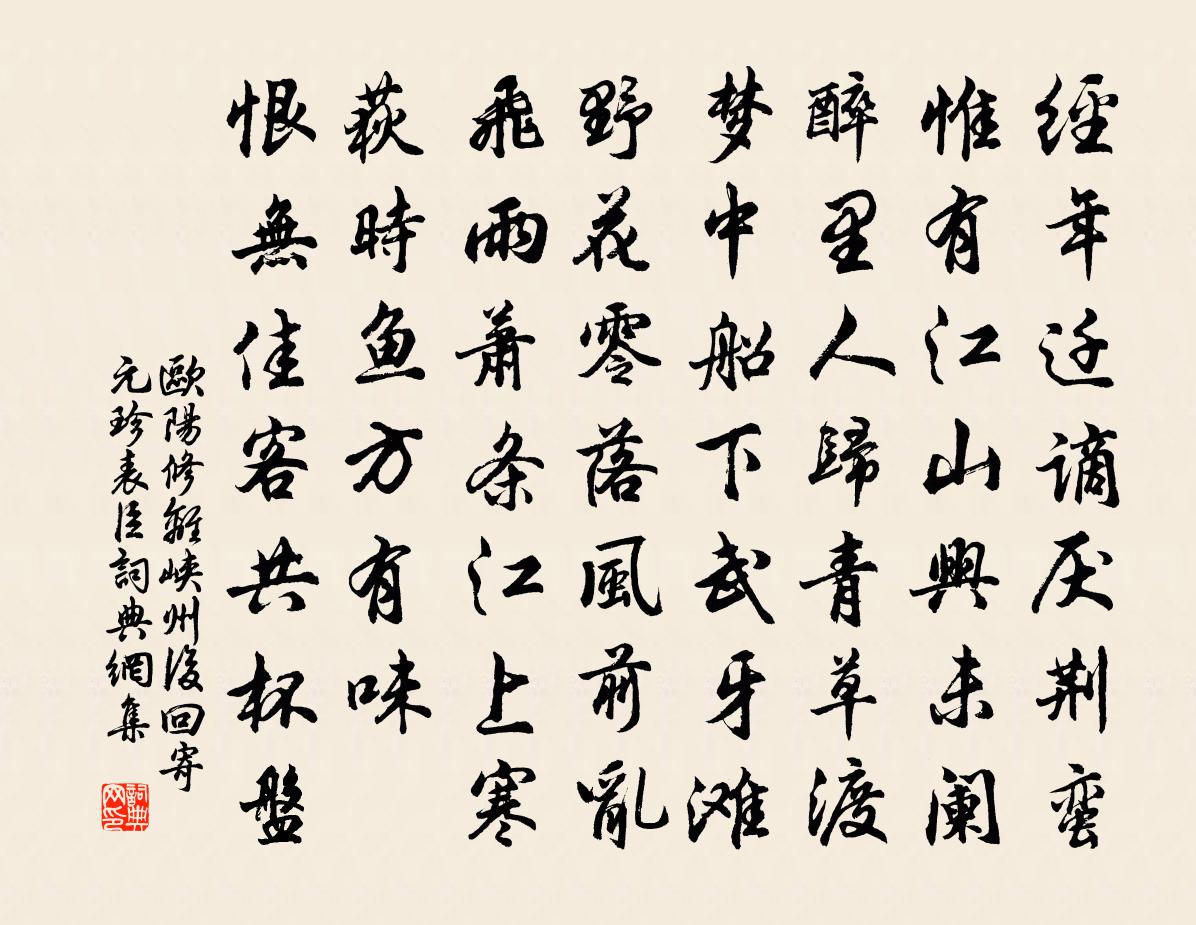 經年迁谪厌荆蛮
惟有江山興未阑
醉里人歸青草渡
梦中船下武牙滩
野花零落風前亂
飛雨蕭条江上寒
荻時鱼方有味
恨無佳客共杯盤
歐陽修離峽州後回寄
元珍表臣詞典網集
詞典网印